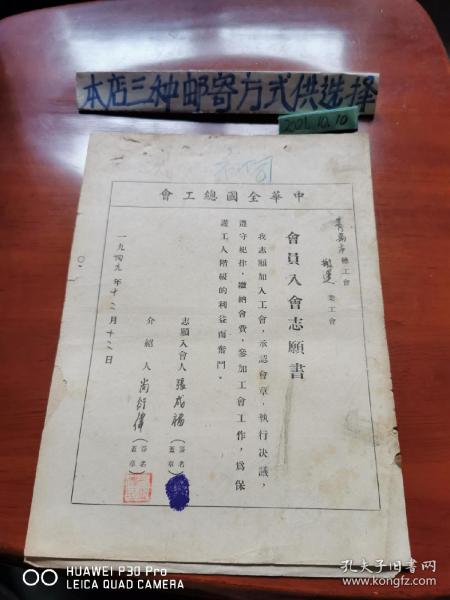 本店三种邮寄方式供选择
2021.10.10
中華全國總工會
青島市總工會
搬運業工會
會員入會志願書
我志願加入工會，承認會章，執行決議，
遵守紀律，繳納會費，參加工會工作，爲保
護工人階級的利益而奮鬥。
志願入會人 張成福（簽名蓋章）
介紹人 尚衍偉（簽名蓋章）
一九四九年十二月十二日
HUAWEI P30 Pro
LEICA QUAD CAMERA
孔夫子旧书网
www.kongfz.com